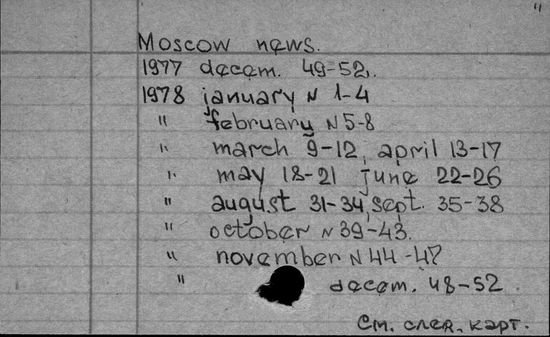 "
Moscow news.
1977 decem. 49-52.
1978 january N 1-4
" february N 5-8
" march 9-12, april 13-17
" may 18-21 june 22-26
" august 31-34, sept. 35-38
" october N 39-43.
" november N 44-47
" decem. 48-52.
См. след. карт.